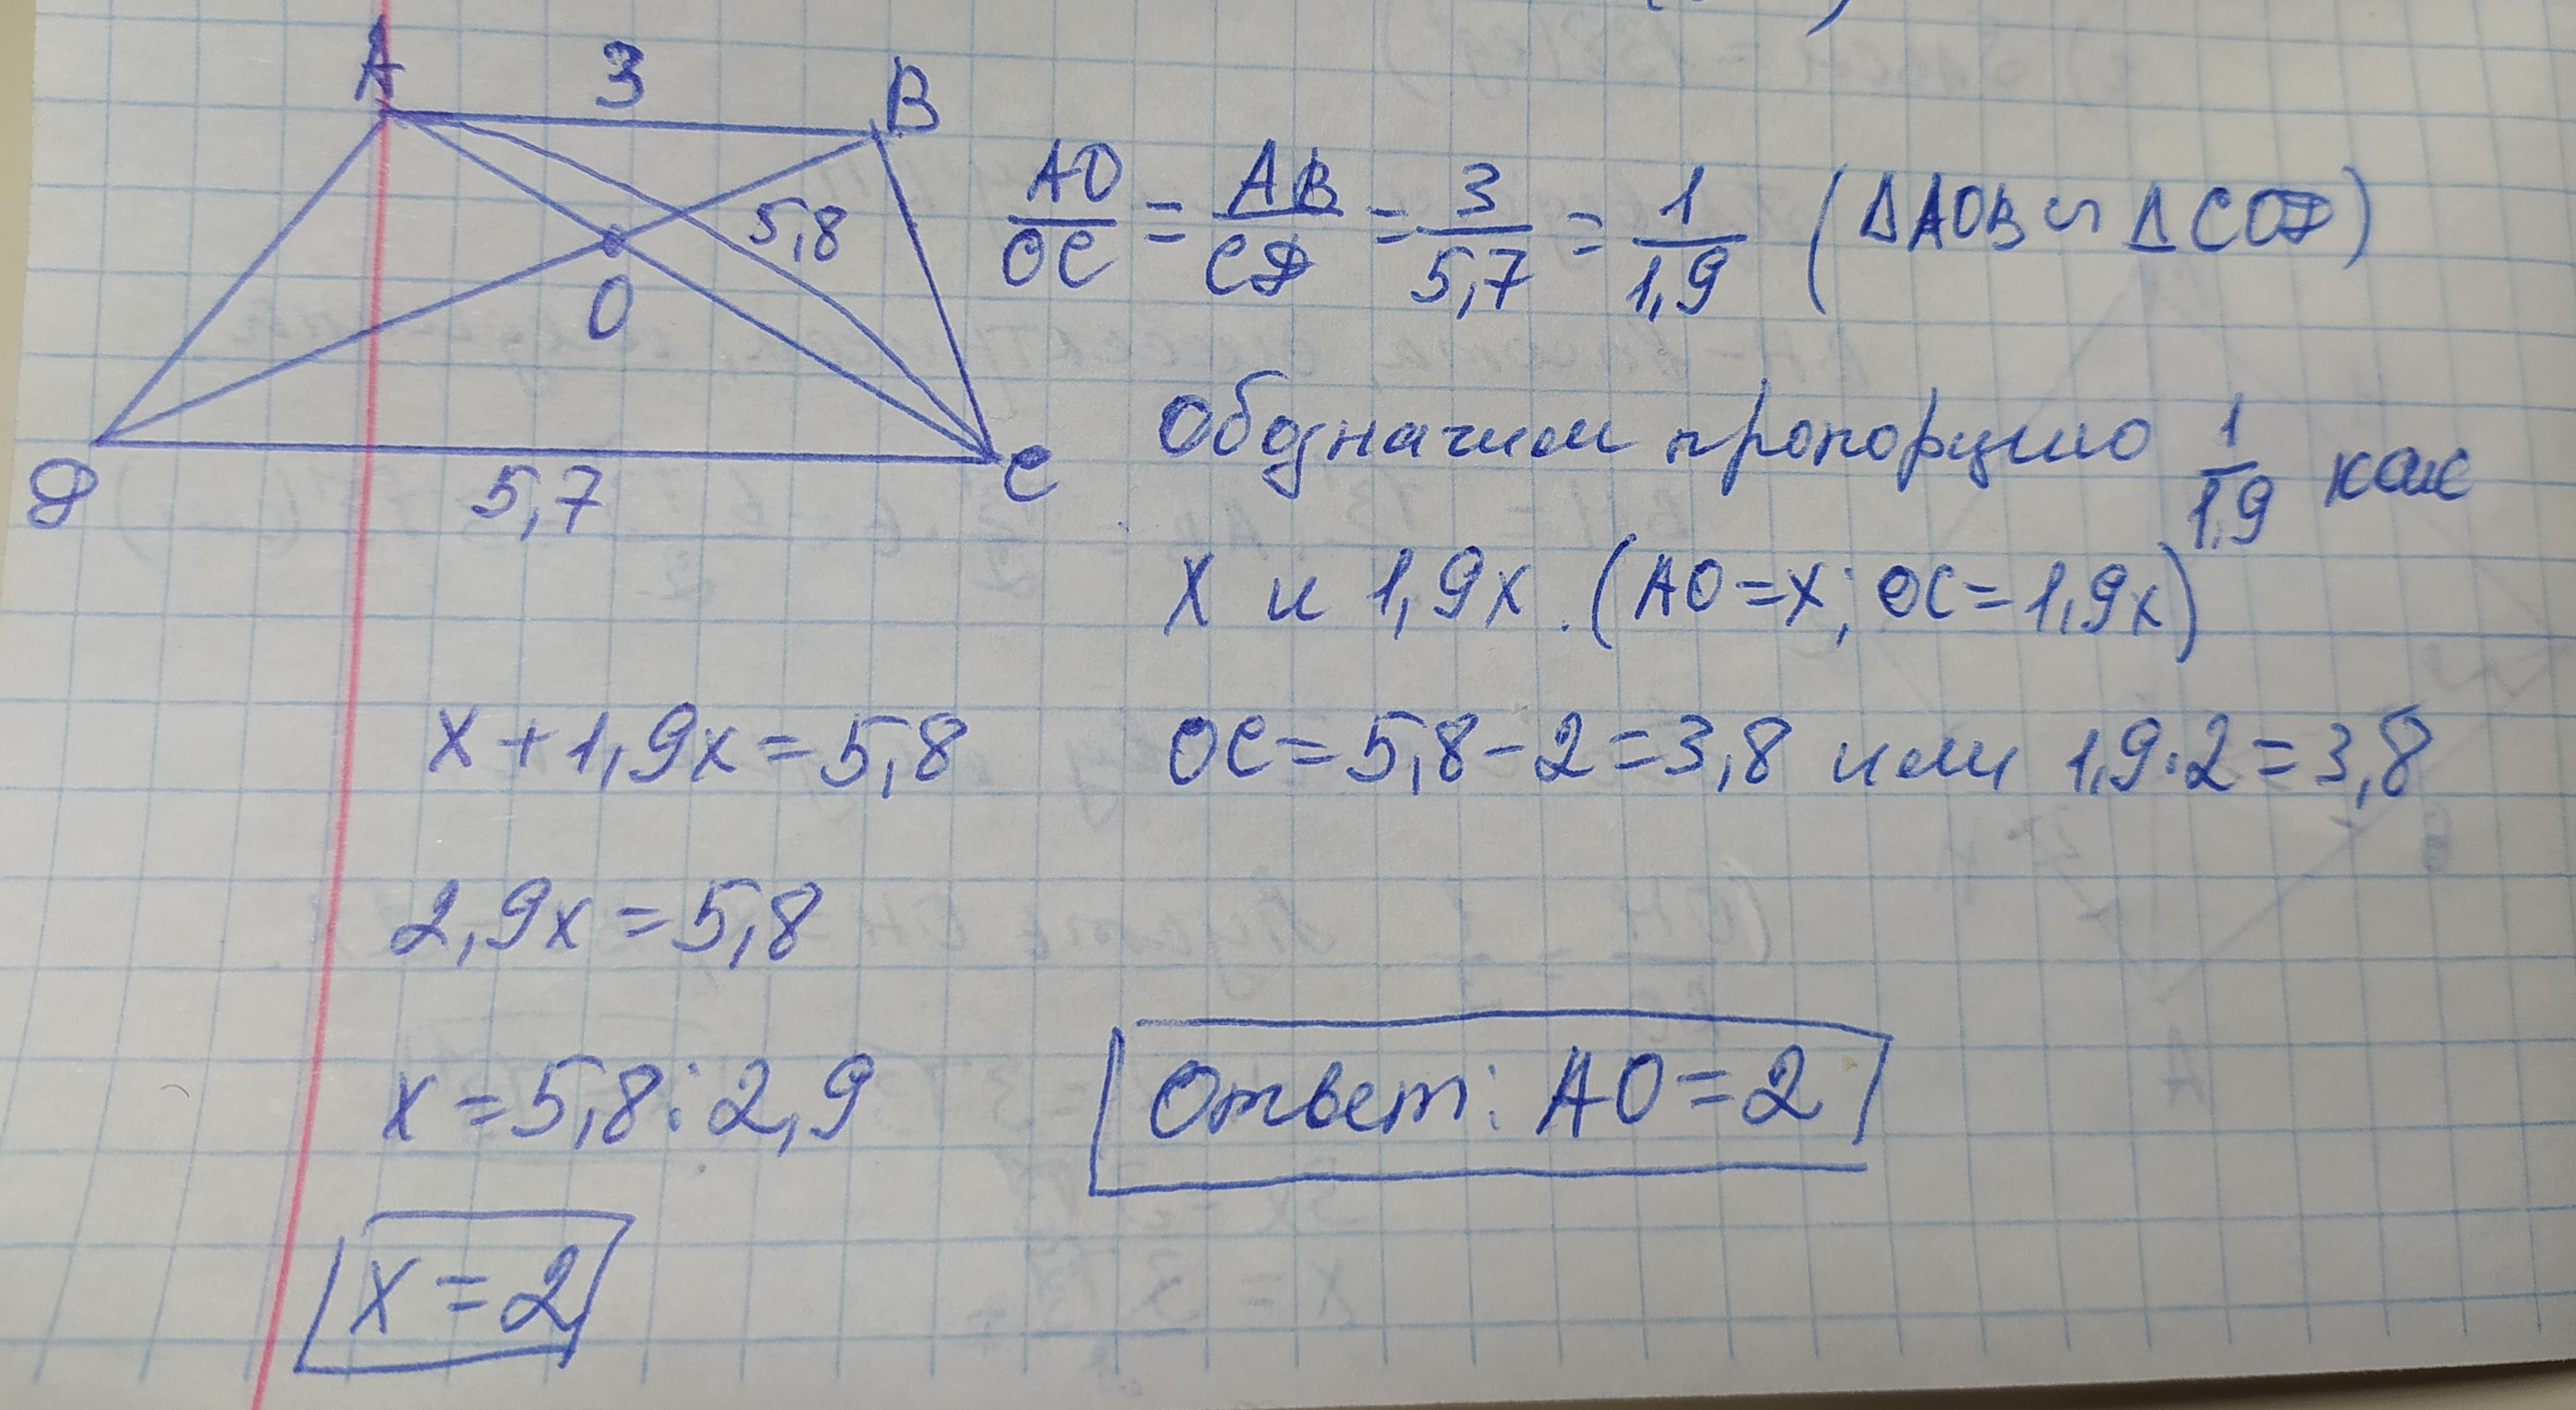 A 3 B
5,8
O
D 5,7 C
AO/OC = AB/CD = 3/5,7 = 1/1,9 (ΔAOB ∽ ΔCOD)
Обозначим пропорцию 1/1,9 как
x и 1,9x. (AO=x; OC=1,9x)
x+1,9x=5,8
OC=5,8-2=3,8 или 1,9·2=3,8
2,9x=5,8
x=5,8:2,9
Ответ: AO=2
x=2